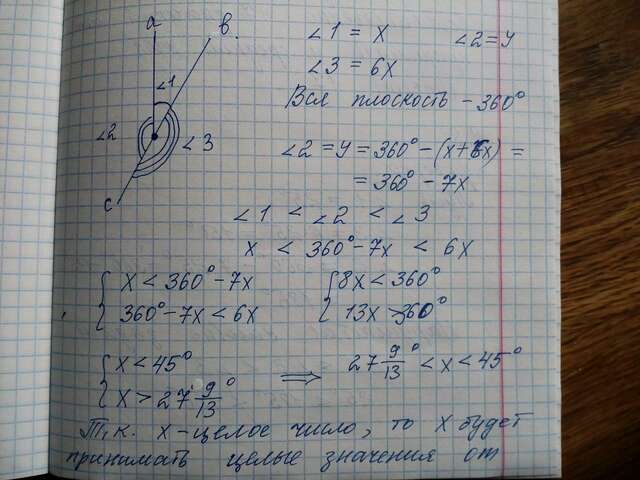 a
b.
∠1
∠2
∠3
c
∠1 = x ∠2 = y
∠3 = 6x
Вся плоскость - 360°
∠2 = y = 360° - (x+6x) =
= 360° - 7x
∠1 < ∠2 < ∠3
x < 360° - 7x < 6x
{ x < 360° - 7x { 8x < 360°
{ 360° - 7x < 6x { 13x > 360°
{ x < 45° ⟹ 27 9/13° < x < 45°
{ x > 27 9/13°
Т.к. x - целое число, то x будет
принимать целые значения от